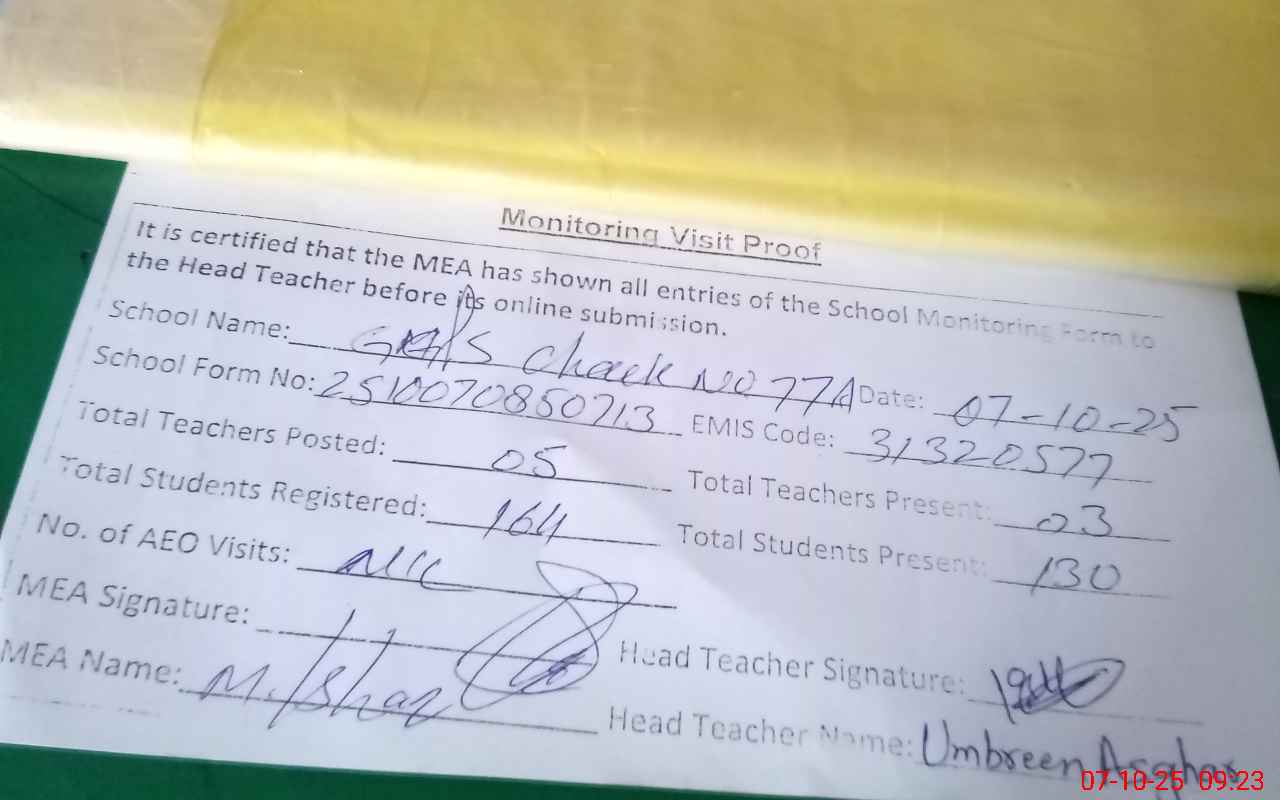 Monitoring Visit Proof
It is certified that the MEA has shown all entries of the School Monitoring Form to
the Head Teacher before its online submission.
School Name: Chack No 77A Date: 07-10-25
School Form No: 2510070850713 EMIS Code: 31320577
Total Teachers Posted: 05 Total Teachers Present: 03
Total Students Registered: 164 Total Students Present: 130
No. of AEO Visits: Nil
MEA Signature: Head Teacher Signature:
MEA Name: M. Ishaq Head Teacher Name: Umbreen Asghar
07-10-25 09:23